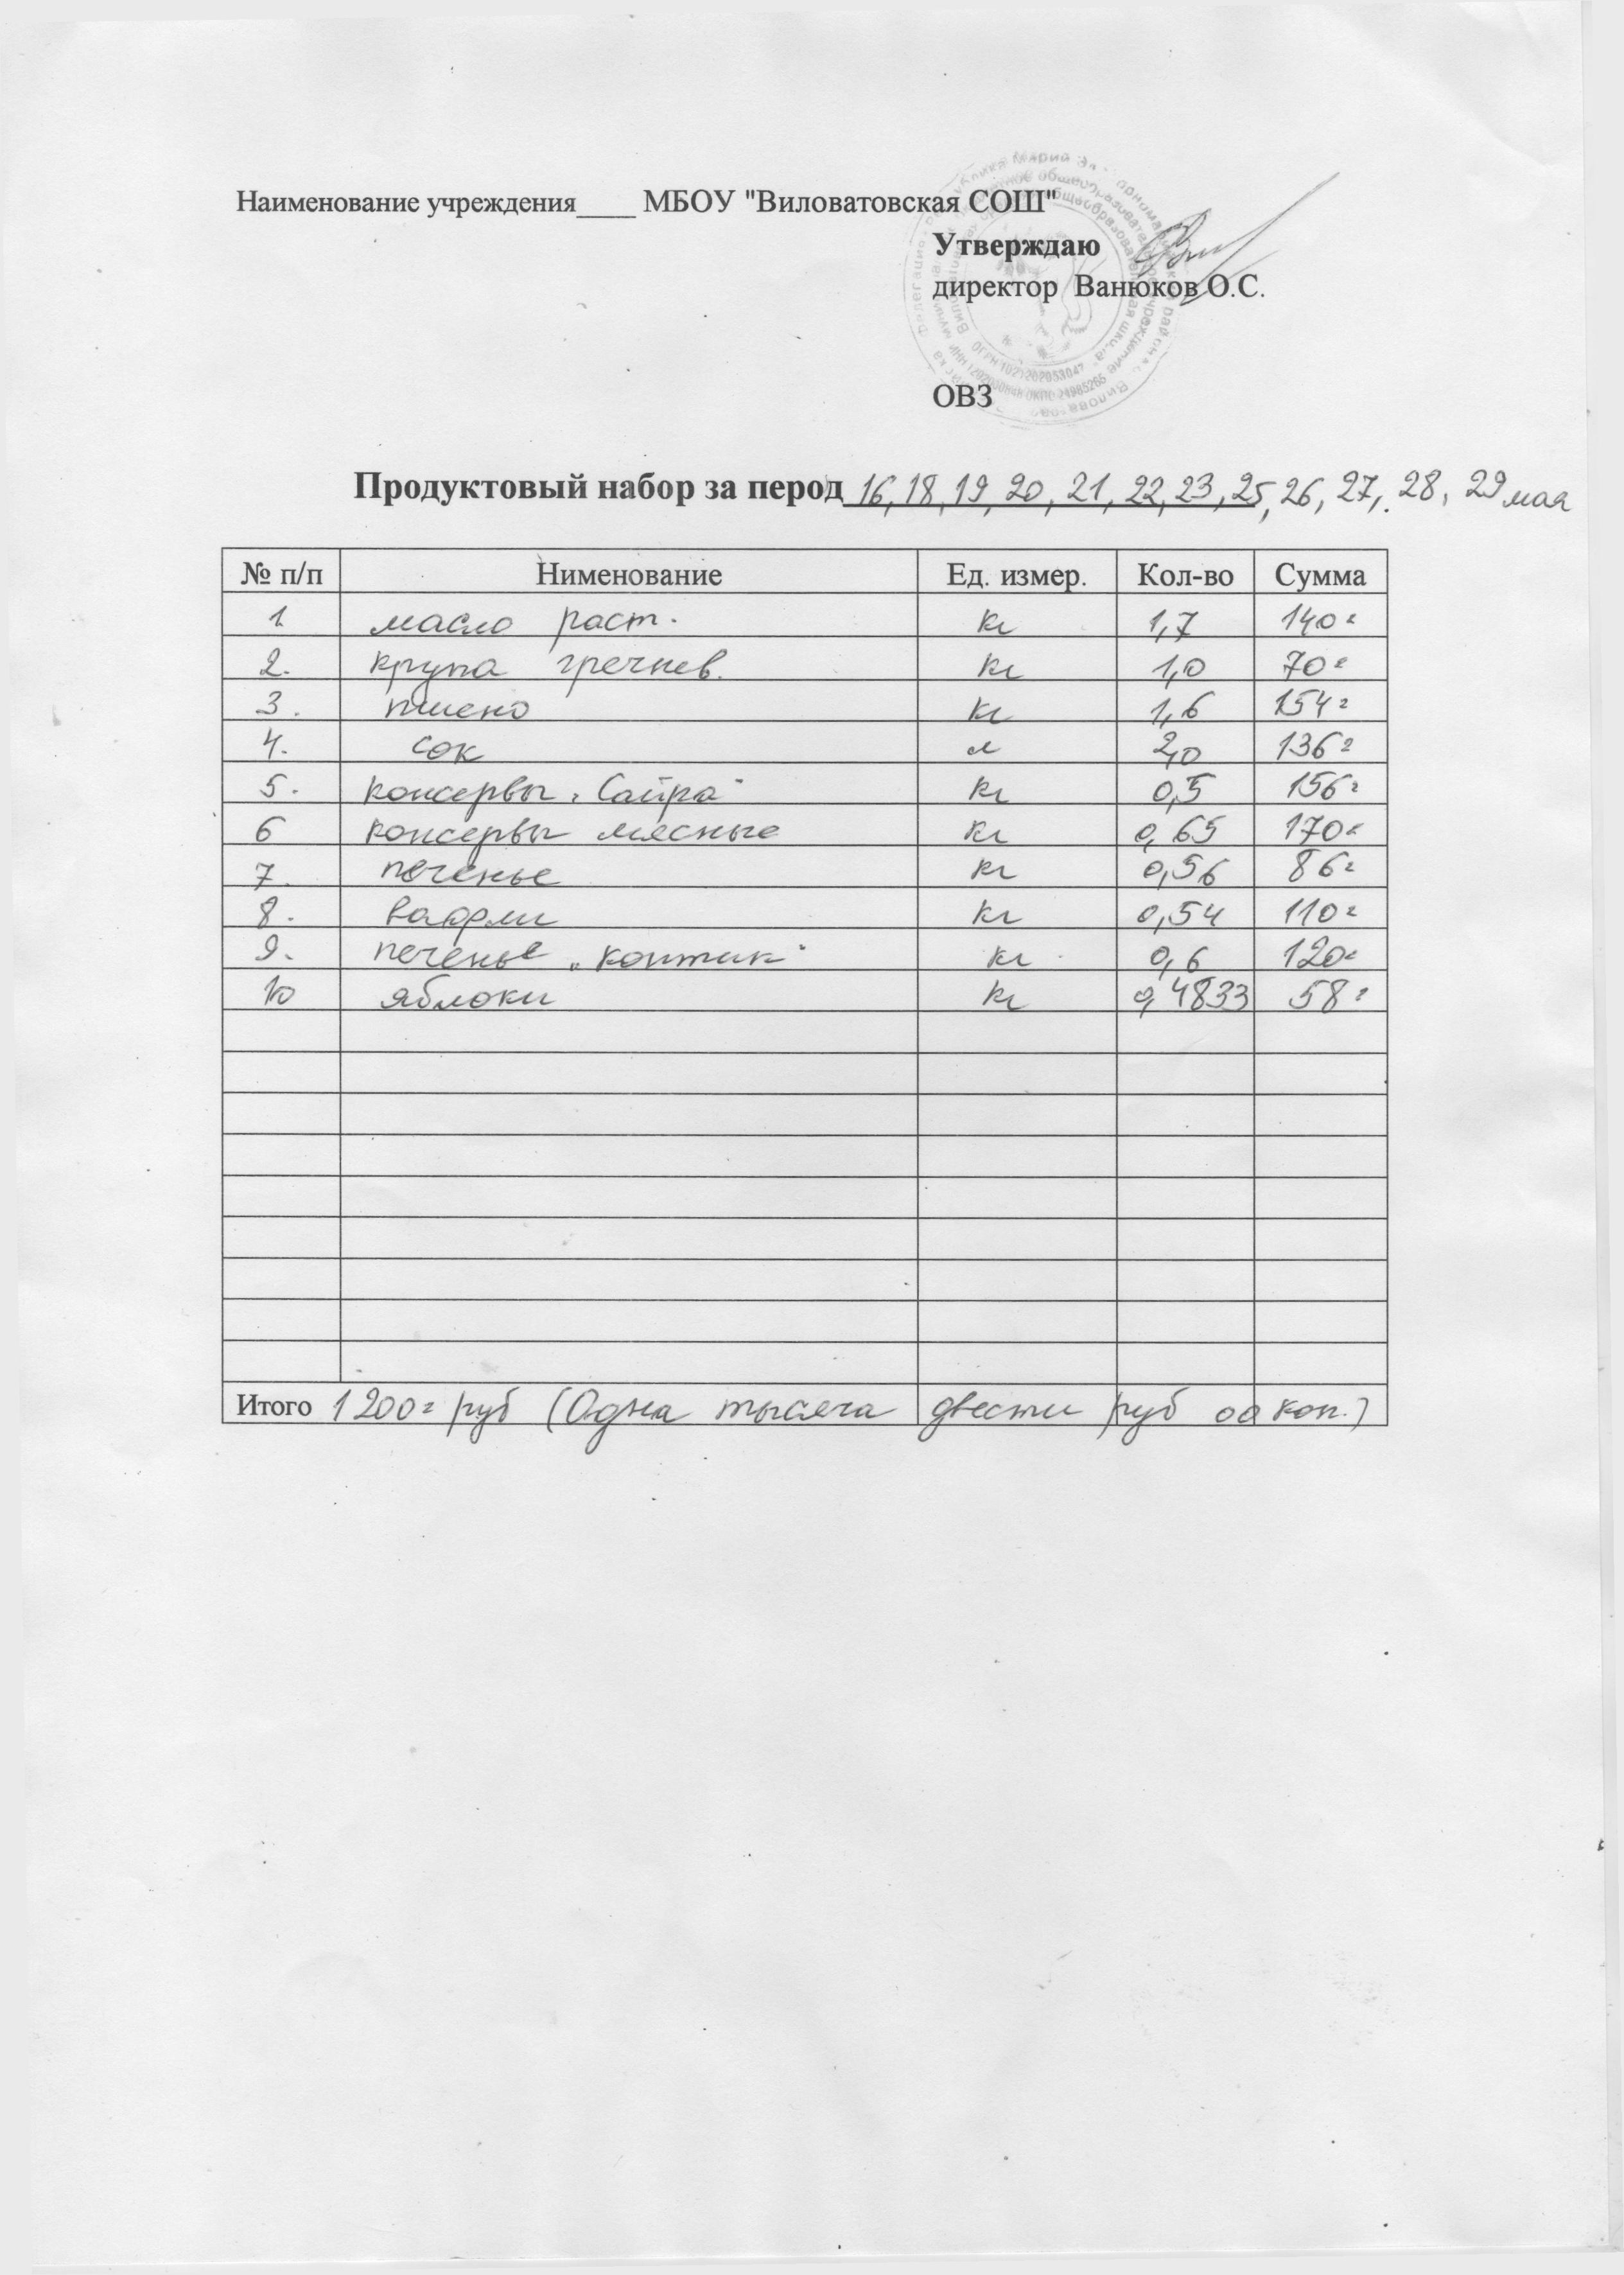 Наименование учреждения____ МБОУ "Виловатовская СОШ"
Утверждаю
директор Ванюков О.С.
ОВЗ
Продуктовый набор за перод 16, 18, 19, 20, 21, 22, 23, 25, 26, 27, 28, 29 мая
№ п/п Нименование Ед. измер. Кол-во Сумма
1 масло раст. кг 1,7 140=
2. крупа гречнев. кг 1,0 70=
3. пшено кг 1,6 154=
4. сок л 2,0 136=
5. консервы "Сайра" кг 0,5 156=
6 консервы мясные кг 0,65 170=
7. печенье кг 0,56 86=
8. вафли кг 0,54 110=
9. печенье „контик" кг 0,6 120=
10 яблоки кг 0,4833 58=
Итого 1200= руб (Одна тысяча двести руб 00 коп.)